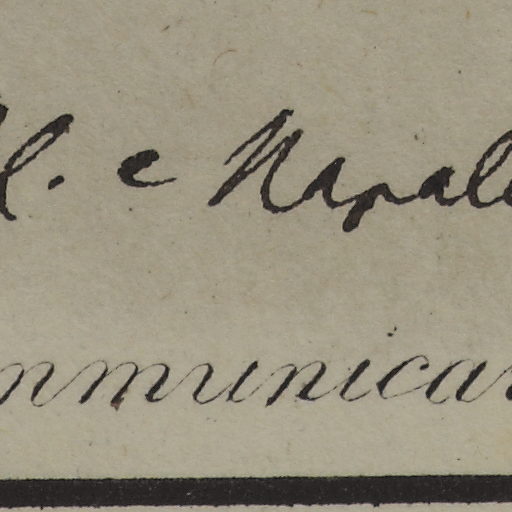 l. e Napale
mmunicar